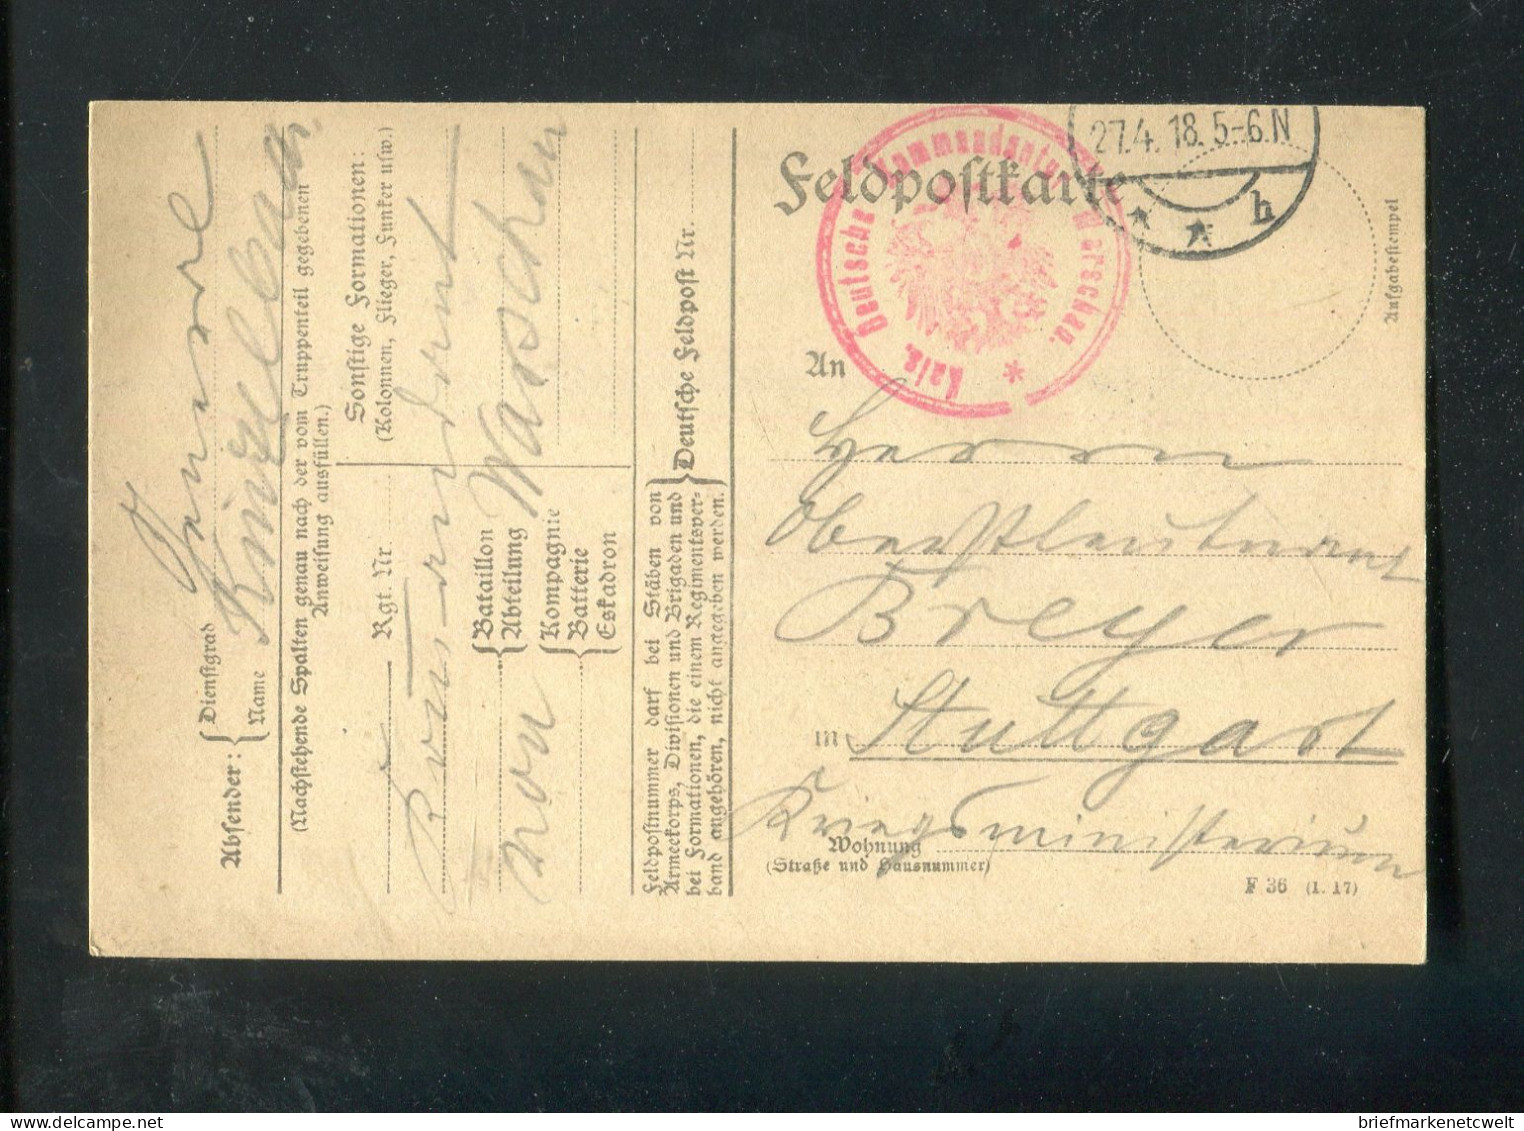 Feldpostkarte
Kais. Deutsche Kommandantur Warschau.
27.4.18.5-6.N
h
Aufgabestempel
An
Herrn
Oberstleutnant
Breyer
in Stuttgart
Kriegsministerium
Wohnung
(Straße und Hausnummer)
F 36 (1. 17)
Absender:
Dienstgrad
Name
(Nachstehende Spalten genau nach der vom Truppenteil gegebenen
Anweisung ausfüllen.)
Rgt. Nr.
Sonstige Formationen:
(Kolonnen, Flieger, Funker usw.)
von Warschau
Bataillon
Abteilung
Kompagnie
Batterie
Eskadron
Feldpostnummer darf bei Stäben von
Armeekorps, Divisionen und Brigaden und
bei Formationen, die einem Regimentsver-
band angehören, nicht angegeben werden.
Deutsche Feldpost Nr.
delcampe.net
briefmarkenetcwelt